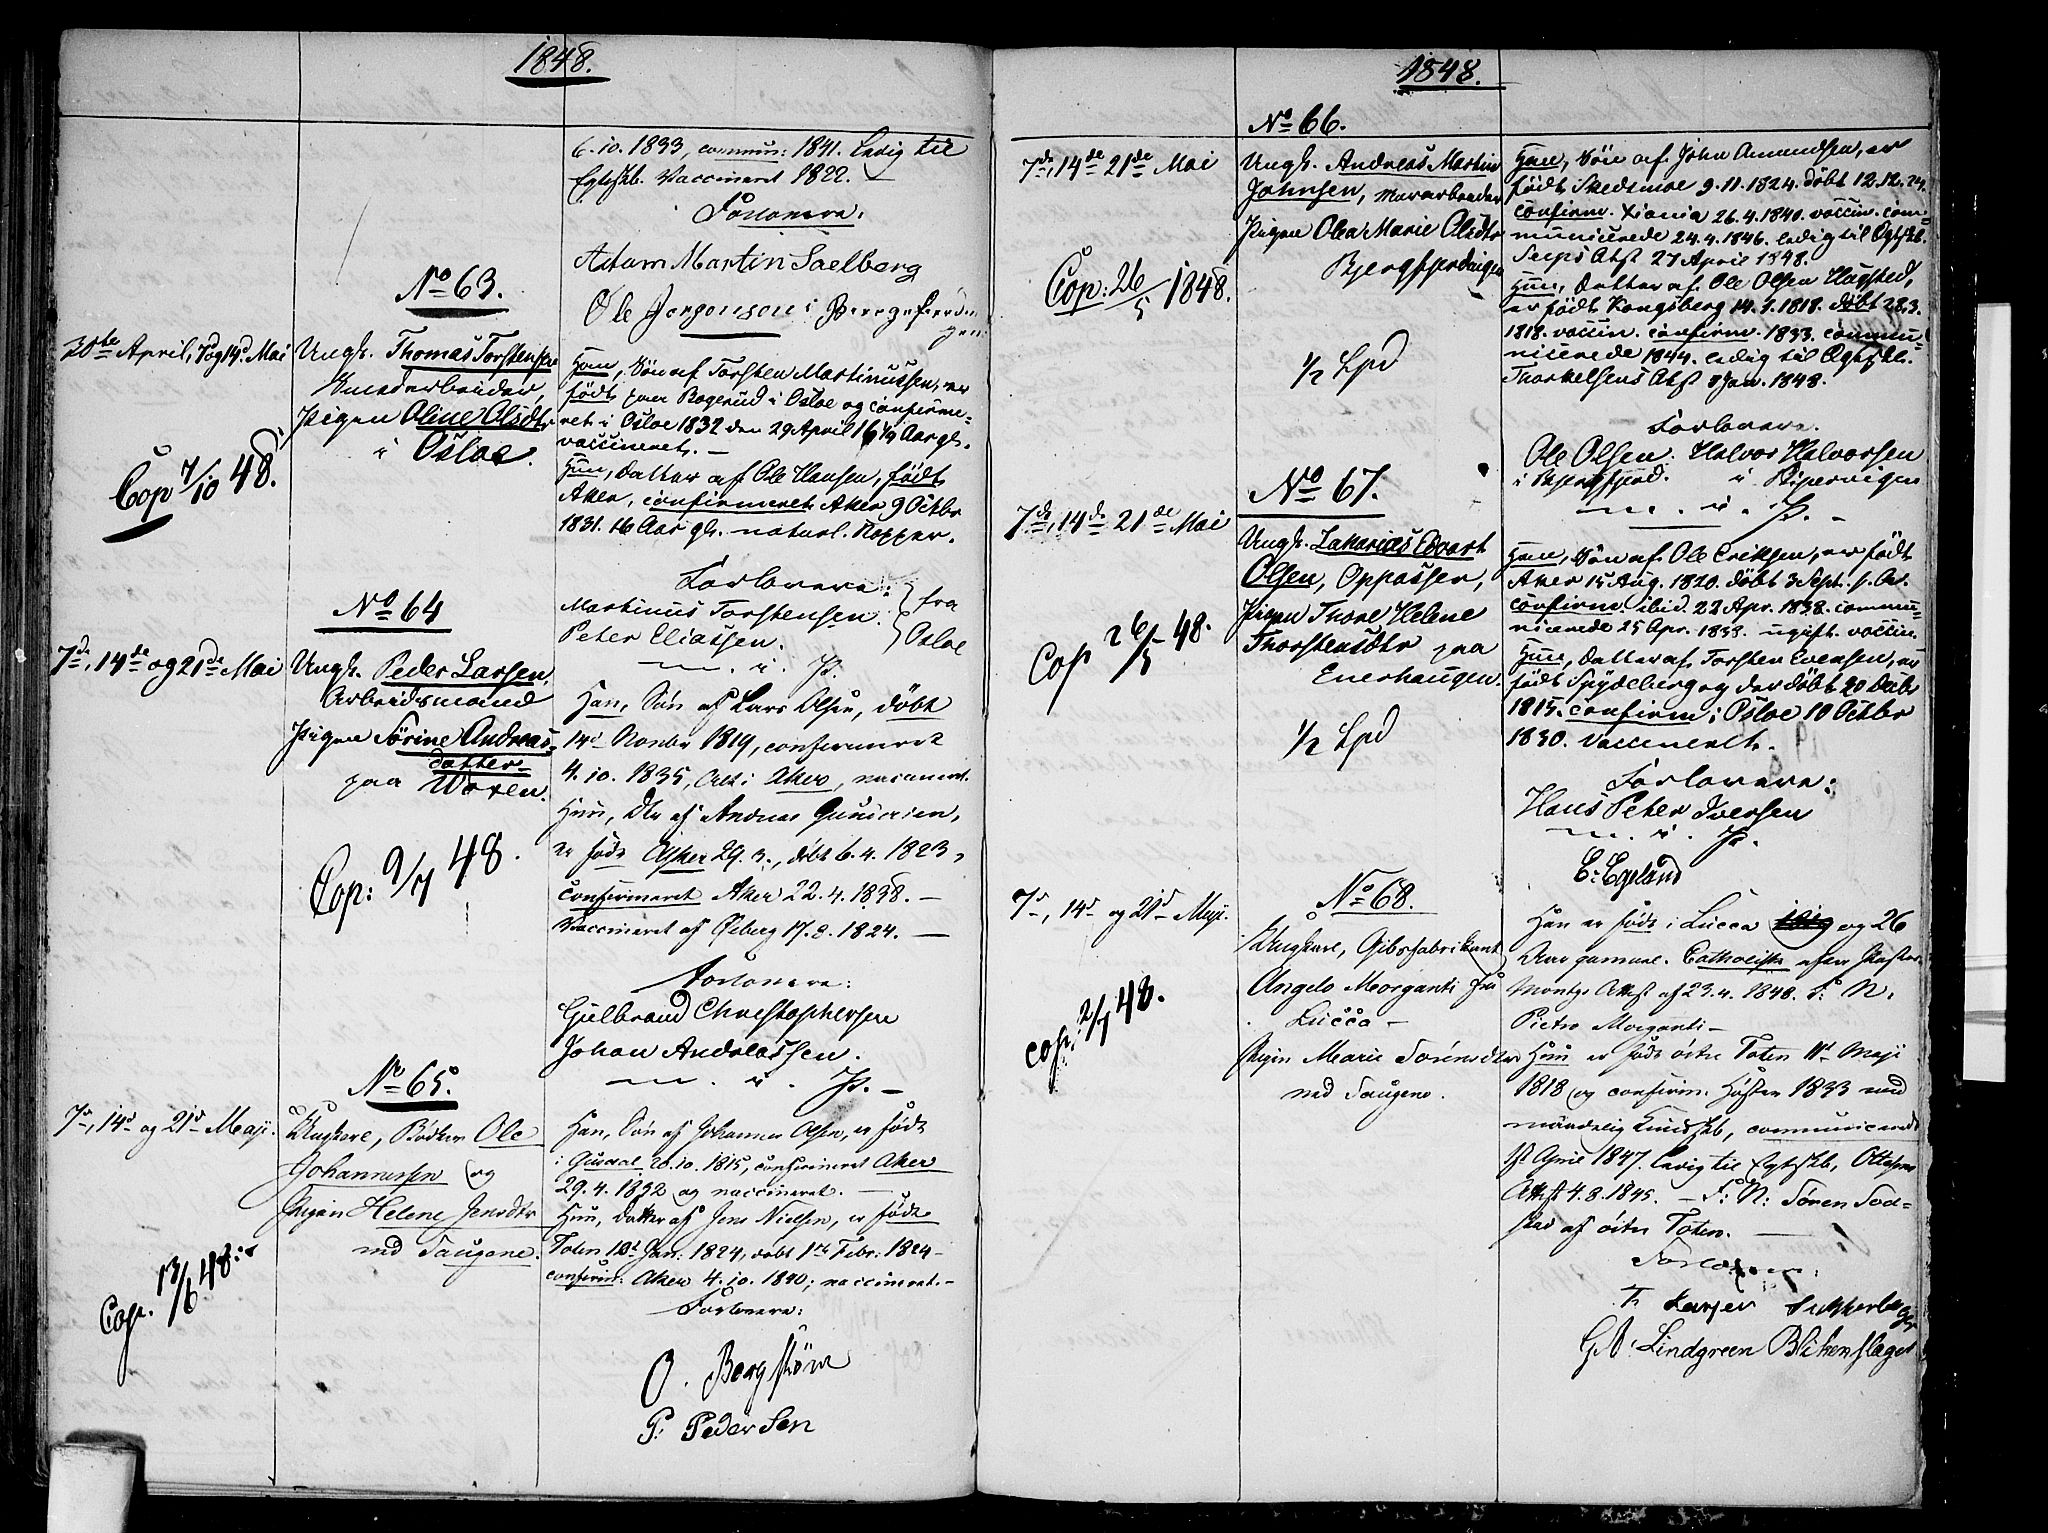 1848.
6.10.1833, commun: 1841. ledig til
Egtskb. Vaccineret 1822.
Forlovere.
Adam Martin Saelberg
Ole Jorgensen i
No 63.
30te April, 7 og 14d Mai
Ungk. Thomas Torstensen
Pigen Oline Olsdtr
i Osloe.
Cop 7/10 48.
Han, Søn af Torsten Martinussen, er
født paa Bogerud i Osloe og confirme-
ret i Osloe 1832 den 29 April 16 1/2 Aar gl.
vaccineret.
Hun, Datter af Ole Hansen, født
Aker, confirmeret Aker 9 Octbr
1831. 16 Aar gl. naturl. Kopper.
Forlovere:
Martinus Torstensen.
Peter Eliassen.
fra
Osloe
m. v. P.
No 64
7de, 14de og 21de Mai
Ungk. Peder Larsen,
Arbeidsmand
Pigen Sørine Andreas-
datter
paa Woxen.
Cop: 9/7 48.
Han, Søn af Lars Olsen, døbt
14d Novbr 1819, confirmeret
4.10.1835, Alt i Aker, vaccineret.
Hun, Dtr af Andreas Gundersen,
er født Asker 29.3., døbt 6.4.1823,
confirmeret Aker 22.4.1838. —
Vaccineret af Øiberg 17.8.1824. —
Forlovere:
Gulbrand Christophersen
Johan Andreassen.
m. v. P. —
No 65.
7d, 14d og 21d Maji.
Ungkarl, Bødker Ole
Johannessen og
Pigen Helene Jensdtr
ved Saugene.
Cop. 13/6 48.
Han, Søn af Johannes Olsen, er født
i Gusdal 20.10.1815, confirmeret Aker
29.4.1832 og vaccineret. —
Hun, Datter af Jens Nielsen, er født
Toten 10d Jan: 1824, døbt 1ste Febr: 1824 —
confirm: Aker 4.10.1840; vaccineret. —
Forlovere:
O. Bergstøm
P. Pedersen
1848.
No 66.
7de, 14de 21de Mai
Ungk. Andreas Martin
Johnsen, Murarbeider
Pigen Olea Marie Olsdtr
Bjergfjerdingen
Cop: 26/5 1848.
1/2 Lpd
Han, Søn af John Amundsen, er
født Skedsmoe 9.11.1824. døbt 12.12.24.
confirm. Xiania 26.4.1840. vaccin. com-
municerede 24.4.1846. ledig til Egtskb.
Seips Atst 27 April 1848.
Hun, Datter af Ole Olsen Hagsted,
er født Kongsberg 14.3.1818. døbt 28.3.
1818. vaccin. confirm. 1833. commu-
nicerede 1844. ledig til Egtskb.
Thorkelsens Atst 8 Jan. 1848.
Forlovere.
Ole Olsen. Halvor Halvorsen
i Bjergfjerd. i Pipervigen
m. v. P. —
No 67.
7de, 14de 21de Mai
Ungk. Zakarias Edvart
Olsen, Oppasser,
Pigen Thore Helene
Thorstensdtr paa
Enerhaugen.
Cop 26/5 48.
1/2 Lpd
Han, Søn af Ole Eriksen, er født
Aker 15 Aug. 1820. døbt 3 Sept. s. Aar.
confirm. ibid. 22 Apr. 1838. commu-
nicerede 25 Apr. 1838. ugift. vaccin.
Hun, Datter af Torsten Evensen, er
født Spydeberg og der døbt 20 Decbr
1815. confirm i Osloe 10 Octbr
1830. vaccineret.
Forlovere:
Hans Peter Iversen
m. v. P.
E. Egeland
No 68.
7d, 14d og 21d Maji.
Ungkarl, Gibsfabrikant
Angelo Morganti fra
Lucca —
Pigen Marie Sørensdtr
ved Saugene.
cop: 2/7 48.
Han er født i Lucca og 26
Aar gammel. Catholisk efter Pastor
Montz Attest af 23.4.1848. F: N.
Pietro Morganti —
Hun er født østre Toten 11d Maji
1818 og confirm: Høsten 1833 med
maadelig Kundskb, communicerede
1st April 1847. ledig til Egtskb, Ottesens
Attest 4.8.1845. — F: N: Søren Sod-
stad af østre Toten. —
Forlovere:
T. Larsen Sukkerbager
G A: Lindgreen Blikenslager